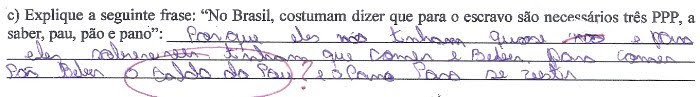 c) Explique a seguinte frase: “No Brasil, costumam dizer que para o escravo são necessários três PPP, a
saber, pau, pão e pano”: Porque eles não tinham quase e para
eles sobreviverem tinham que comer e Beber, para comer
Pão Beber o Caldo do Pau? e o Pano Para se vestir